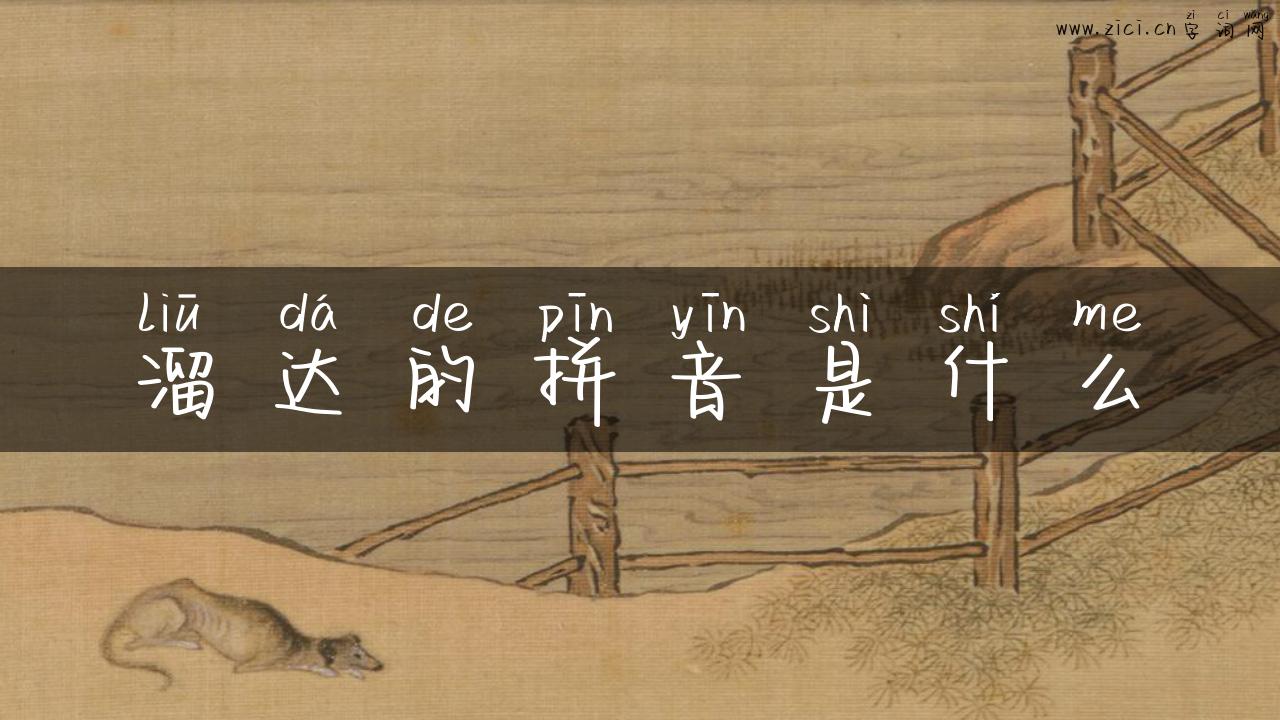 zi ci wang
www.zici.cn 字词网
liū dá de pīn yīn shì shí me
溜达的拼音是什么